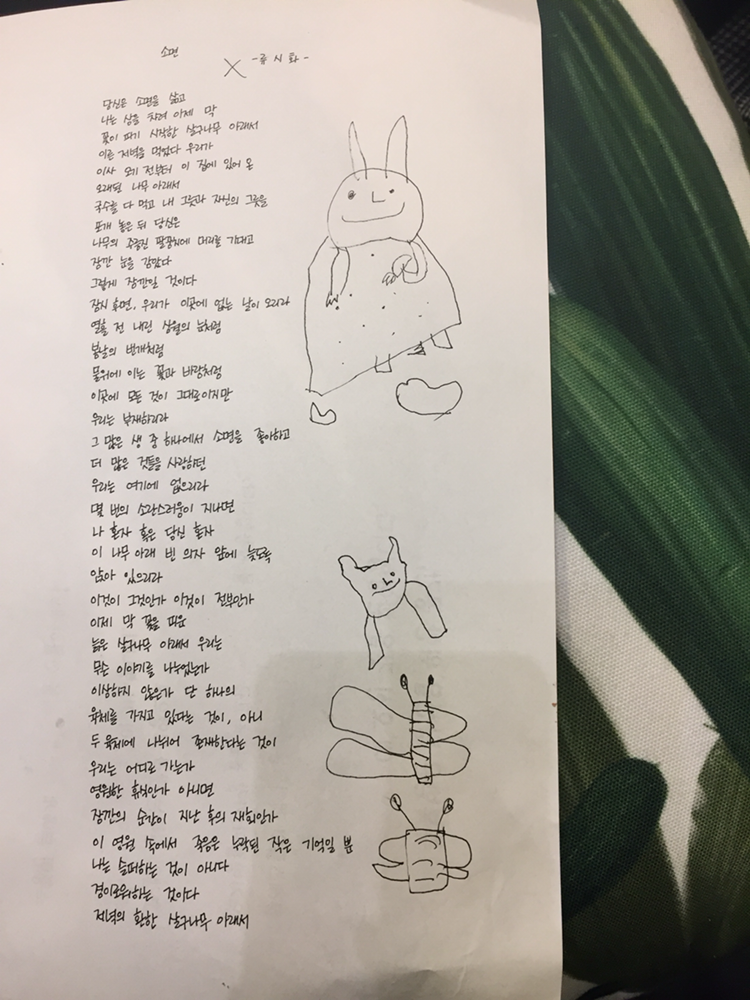 소면
-류시화-
당신은 소면을 삶고
나는 상을 차려 이제 막
꽃이 피기 시작한 살구나무 아래서
이른 저녁을 먹었다 우리가
이사 오기 전부터 이 집에 있어 온
오래된 나무 아래서
국수를 다 먹고 내 그릇과 자신의 그릇을
포개 놓은 뒤 당신은
나무의 주름진 팔꿈치에 머리를 기대고
잠깐 눈을 감았다
그렇게 잠깐일 것이다
잠시 후면, 우리가 이곳에 없는 날이 오리라
열흘 전 내린 삼월의 눈처럼
봄날의 번개처럼
물위에 이는 꽃과 바람처럼
이곳에 모든 것이 그대로이지만
우리는 부재하리라
그 많은 생 중 하나에서 소면을 좋아하고
더 많은 것들을 사랑하던
우리는 여기에 없으리라
몇 번의 소란스러움이 지나면
나 혼자 혹은 당신 혼자
이 나무 아래 빈 의자 앞에 늦도록
앉아 있으리라
이것이 그것인가 이것이 전부인가
이제 막 꽃을 피운
늙은 살구나무 아래서 우리는
무슨 이야기를 나누었는가
이상하지 않은가 단 하나의
육체를 가지고 있다는 것이, 아니
두 육체에 나뉘어 존재한다는 것이
우리는 어디로 가는가
영원한 휴식인가 아니면
잠깐의 순간이 지난 후의 재회인가
이 영원 속에서 죽음은 누락된 작은 기억일 뿐
나는 슬퍼하는 것이 아니다
경이로워하는 것이다
저녁의 환한 살구나무 아래서